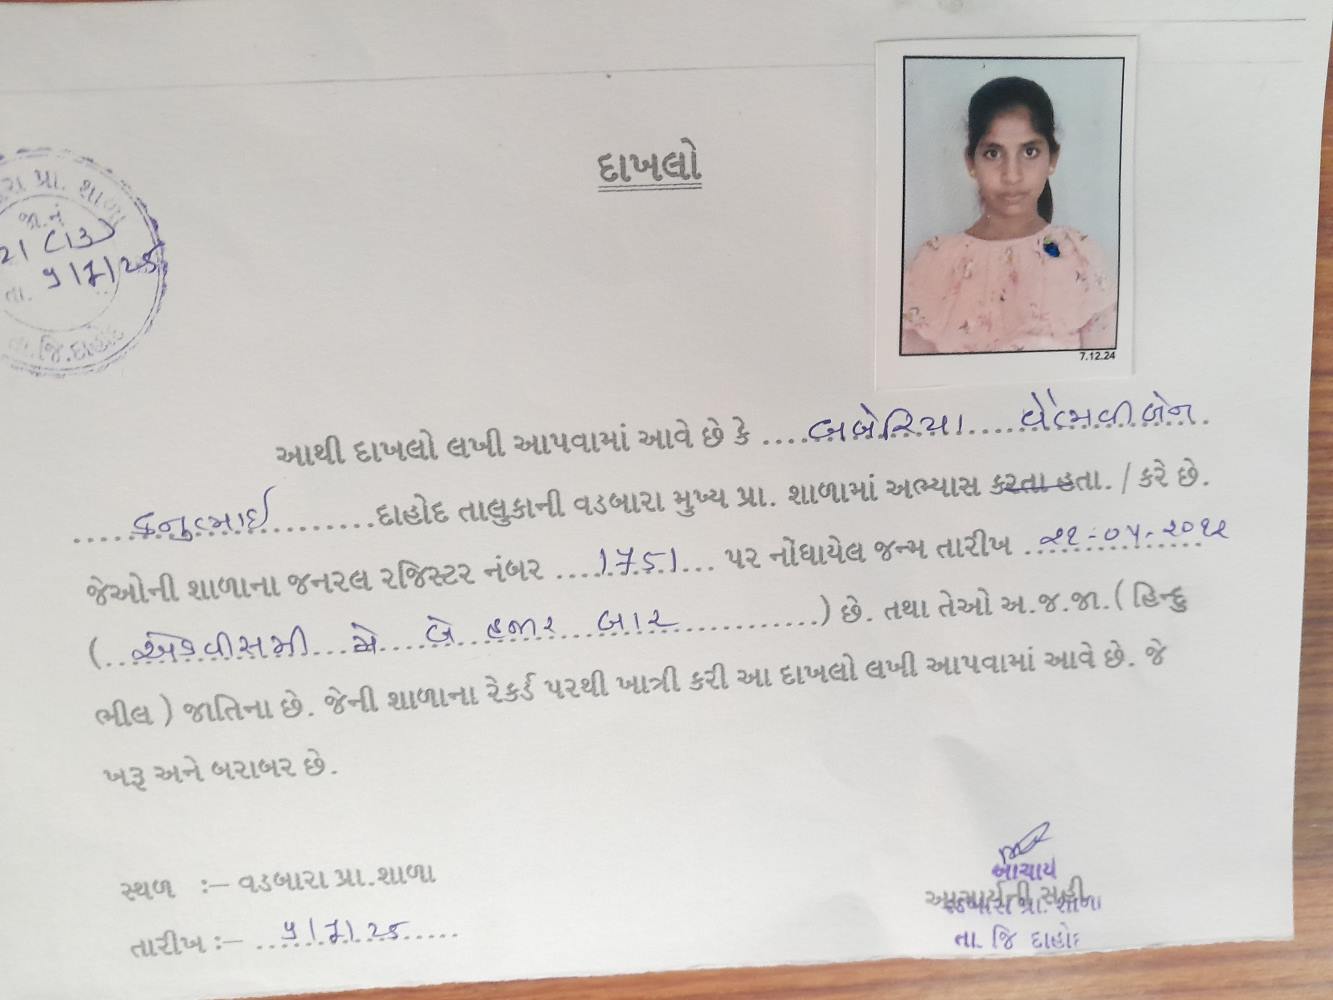 દાખલો
પ્રા. શાળા
જા.નં
21 (13)
તા. ૫/7/25
તા.જિ.દાહોદ
7.12.24
આથી દાખલો લખી આપવામાં આવે છે કે ....બબેરિયા.... .
....કનુભાઈ.........દાહોદ તાલુકાની વડબારા મુખ્ય પ્રા. શાળામાં અભ્યાસ કરતા હતા. / કરે છે.
જેઓની શાળાના જનરલ રજિસ્ટર નંબર ....1751... પર નોંધાયેલ જન્મ તારીખ ૨૧-૦૫-૨૦૧૨
(...એકવીસમી...મે....બે હજાર બાર..............) છે. તથા તેઓ અ.જ.જા. ( હિન્દુ
ભીલ ) જાતિના છે. જેની શાળાના રેકર્ડ પરથી ખાત્રી કરી આ દાખલો લખી આપવામાં આવે છે. જે
ખરૂ અને બરાબર છે.
સ્થળ :– વડબારા પ્રા.શાળા
તારીખ :– ...૫/7/25.....
આચાર્ય
આચાર્યની સહી
વડબારા પ્રા. શાળા
તા. જિ દાહોદ